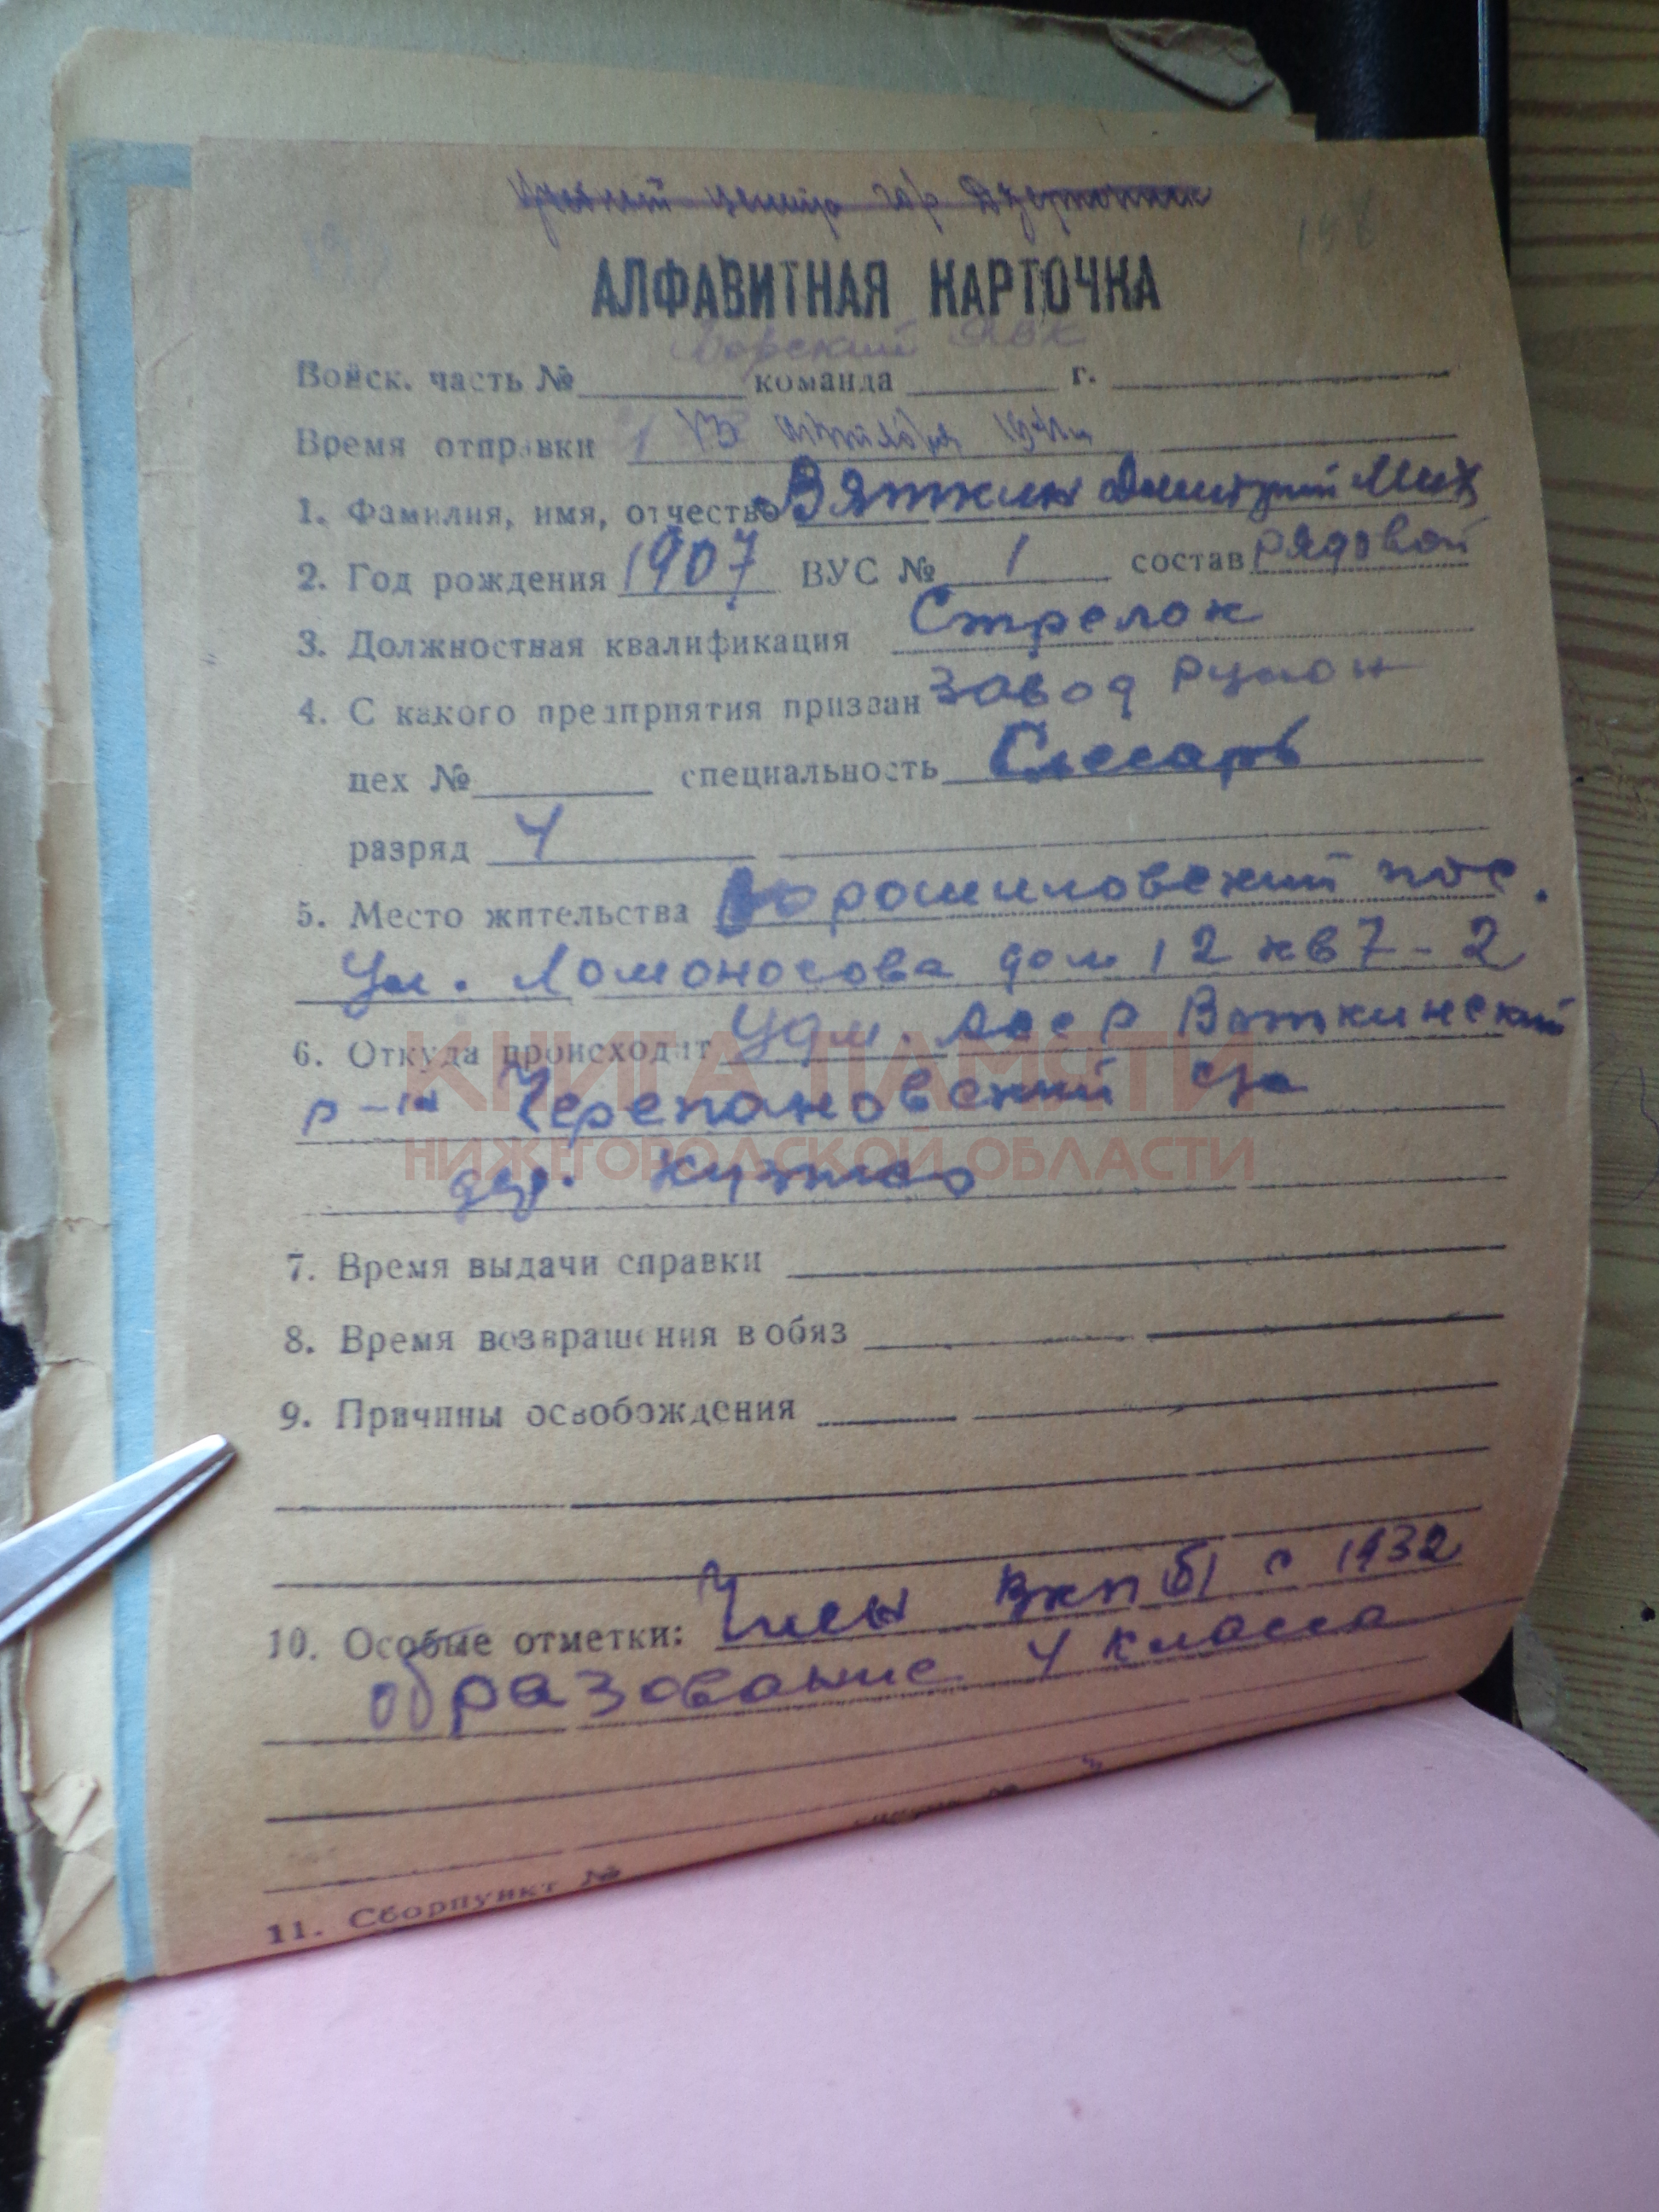 Учебный центр гор Дзержинск
АЛФАВИТНАЯ КАРТОЧКА
Борский РВК
Войск. часть № команда г.
Время отправки 13 1941г
1. Фамилия, имя, отчество Вяткин Дмитрий Мих
2. Год рождения 1907 ВУС № 1 состав рядовой
3. Должностная квалификация Стрелок
4. С какого предприятия призван завод
цех № специальность Слесарь
разряд 4
5. Место жительства Ворошиловский пос.
Ул. Ломоносова дом 12 кв 7-2
6. Откуда происходит Удм. Асср Воткинский
р-н Черепановский
дер.
КНИГА ПАМЯТИ
НИЖЕГОРОДСКОЙ ОБЛАСТИ
7. Время выдачи справки
8. Время возвращения в обяз
9. Причины освобождения
10. Особые отметки: Член ВКП(б) с 1932
образование 4 класса
11. Сборпункт №